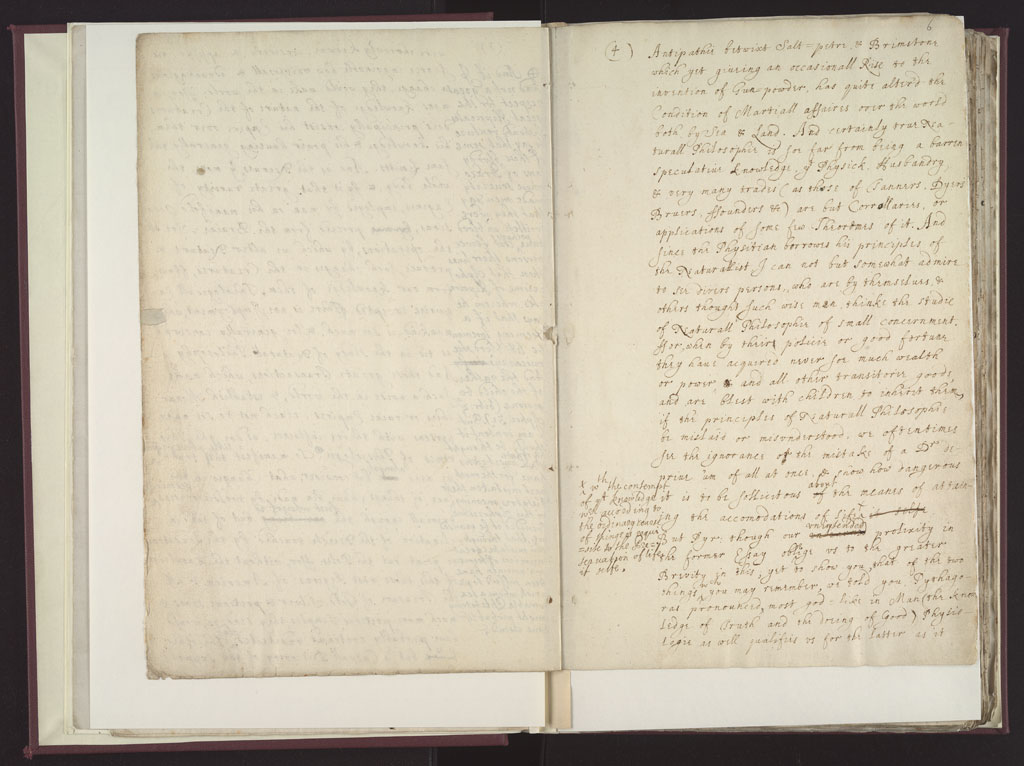 6
(4)
Antipathie betwixt Salt-petre & Brimstone
which yet giuing an occasionall Rise to the
invention of Gun-powder, has quite alterd the
Condition of Martiall affaires over the world
both by Sea & Land. And certainly true Na-
turall Philosophie is soe far from being a barren
speculatiue knowledge, yt Physick, Husbandry
& very many trades (as those of Tanners, Dyers
Bruers, ffounders &c) are but Corrollaries, or
applications of some few Theoremes of it. And
since the Physitian borrowes his principles of
the Naturallist, J can not but somewhat admire
to see divers persons, who are by themselues &
others thought such wise men, thinke the studie
of Naturall Philosophie of small concernment.
ffor, when by their policie or good fortune
they haue acquired never soe much wealth
or power and all other transitorie goods,
and are blest with children to inherit them,
if the principles of Naturall Philosophie
be mislaid or misunderstood, we oftentimes
see the ignorance of the mistake of a Dr de-
priue 'um of all at once, & show how dangerous
it is to be sollicitous about the meanes of attain-
ing the accomodations of life
x wth the contempt
of yt knowledge
wch according to
the ordinary course
of things is requi-
=site to the
preseruation of life
it selfe.
But Pyr: though our unintended prolixity in
the former Essay oblige vs to the greater
Brevity in this, yet to show you, that of the two
things, wch you may remember, we told you Pythago-
ras pronounced, most god-like in Man (the know
ledge of Truth and the doeing of Good) Physio-
logie as well qualifies vs for the latter as it